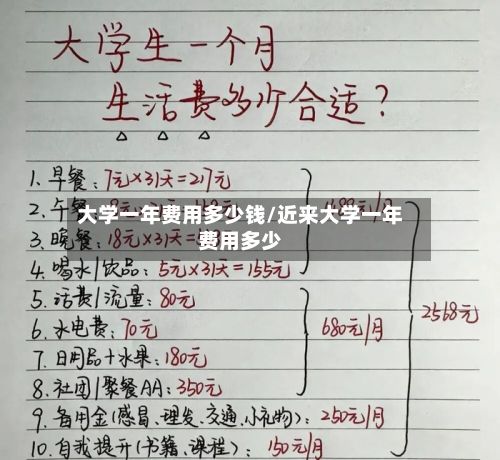 大学生一个月
生活费多少合适?
1. 早餐: 7元×31天=217元
2. 午餐
大学一年费用多少钱/近来大学一年
费用多少
3. 晚餐: 18元×31天=
4. 喝水/饮品: 5元×31天=155元
5. 话费/流量: 80元
6. 水电费: 70元
680元/月
2568元
7. 日用品+水果: 180元
8. 社团/聚餐AA: 350元
9. 备用金(感冒、理发、交通、小礼物): 250元/月
10. 自我提升(书籍、课程): 150元/月